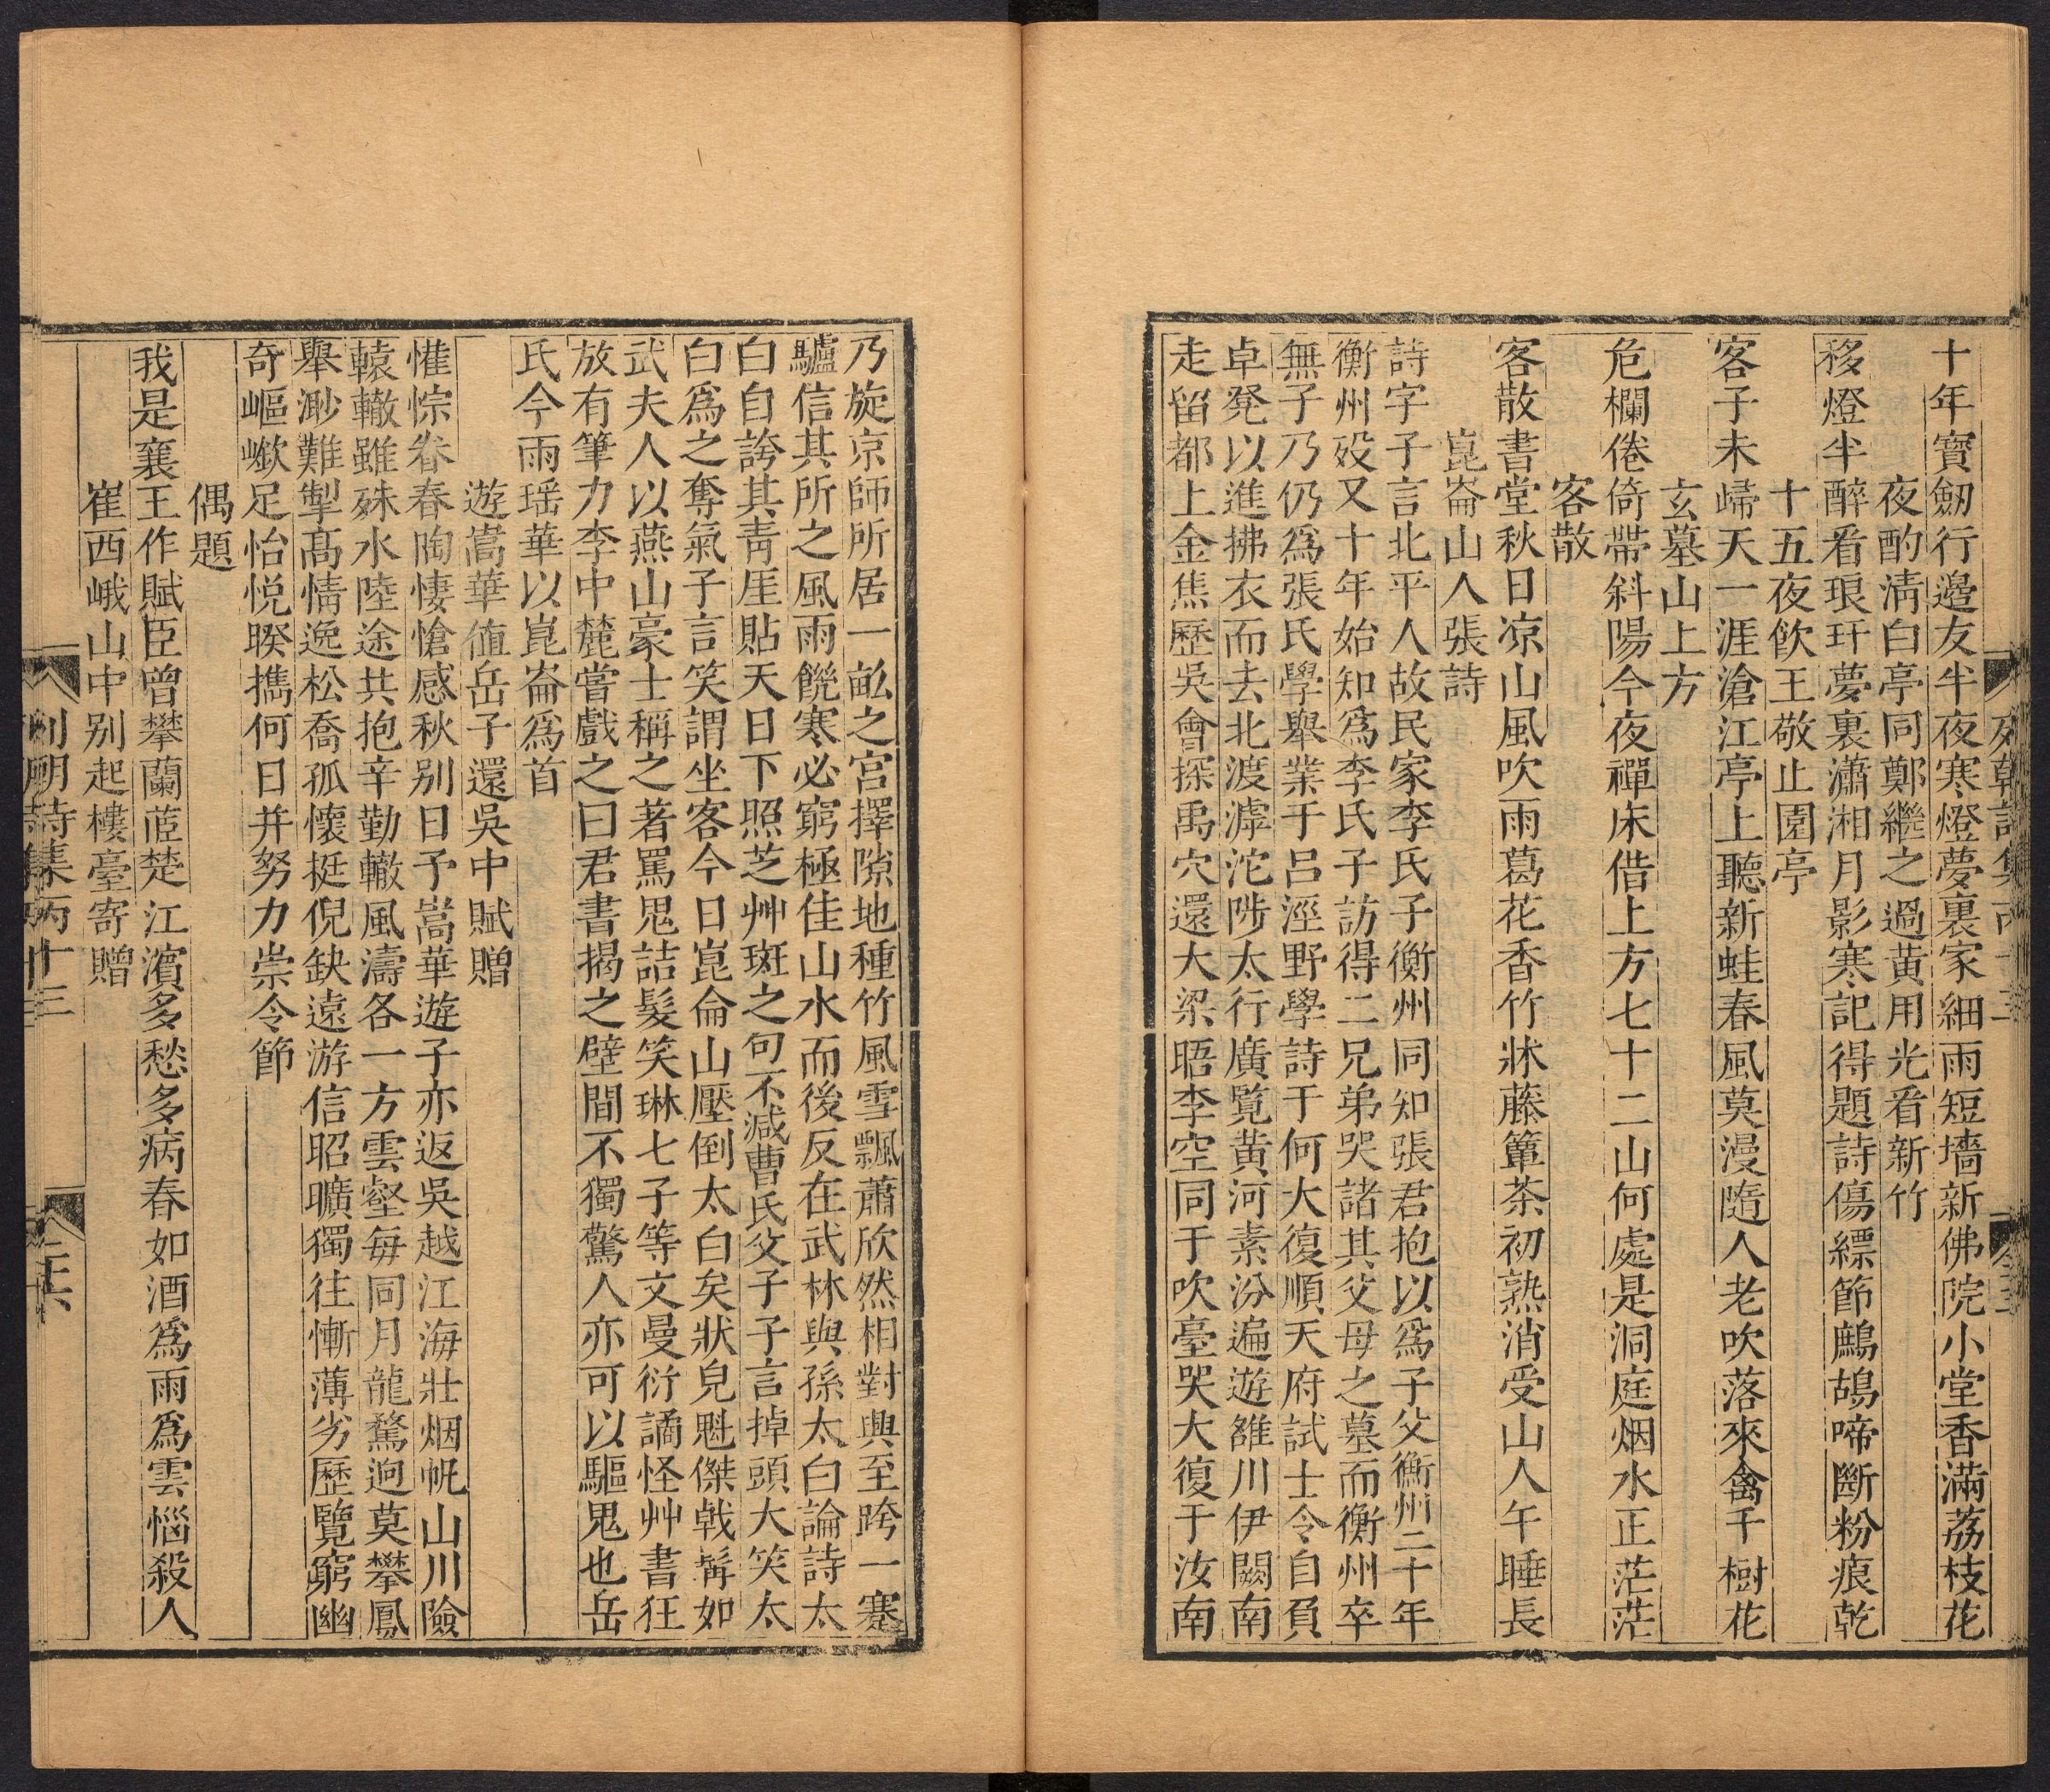 十年寶劒行邊友半夜寒燈夢裏家細雨短墻新佛院小堂香滿荔枝花
夜酌淸白亭同鄭繼之過黃用光看新竹
移燈半醉看琅玕夢裏瀟湘月影寒記得題詩傷縹節鷓鴣啼斷粉痕乾
十五夜飮王敬止園亭
客子未歸天一涯滄江亭上聽新蛙春風莫漫隨人老吹落來禽千樹花
玄墓山上方
危欄倦倚帶斜陽今夜禪床借上方七十二山何處是洞庭烟水正茫茫
客散
客散書堂秋日凉山風吹雨葛花香竹牀藤簟茶初熟消受山人午睡長
崑崙山人張詩
詩字子言北平人故民家李氏子衡州同知張君抱以爲子父衡州二十年
衡州歿又十年始知爲李氏子訪得二兄弟哭諸其父母之墓而衡州卒
無子乃仍爲張氏學舉業于呂涇野學詩于何大復順天府試士令自負
卓凳以進拂衣而去北渡滹沱陟太行廣覽黃河素汾遍遊雒川伊闕南
走留都上金焦歷吳會探禹穴還大梁晤李空同于吹臺哭大復于汝南
乃旋京師所居一畝之宮擇隙地種竹風雪飄蕭欣然相對興至跨一蹇
驢信其所之風雨饑寒必窮極佳山水而後反在武林與孫太白論詩太
白自誇其靑厓貼天日下照芝艸斑之句不減曹氏父子子言掉頭大笑太
白爲之奪氣子言笑謂坐客今日崑侖山壓倒太白矣狀皃魁傑戟髯如
武夫人以燕山豪士稱之著罵鬼詰髮笑琳七子等文曼衍譎怪艸書狂
放有筆力李中麓嘗戲之曰君書揭之壁間不獨驚人亦可以驅鬼也岳
氏今雨瑶華以崑崙爲首
遊嵩華値岳子還吳中賦贈
懽悰眷春陶悽愴感秋别日予嵩華遊子亦返吳越江海壯烟帆山川險
轅轍雖殊水陸途共抱辛勤轍風濤各一方雲壑毎同月龍騖迥莫攀鳳
舉渺難掣髙情逸松喬孤懷挺倪缺遠游信昭曠獨往慚薄劣歷覽窮幽
奇嶇嶔足怡悅睽擕何日并努力崇令節
偶題
我是襄王作賦臣曾攀蘭茝楚江濱多愁多病春如酒爲雨爲雲惱殺人
崔西峨山中别起樓臺寄贈
列朝詩集丙十三